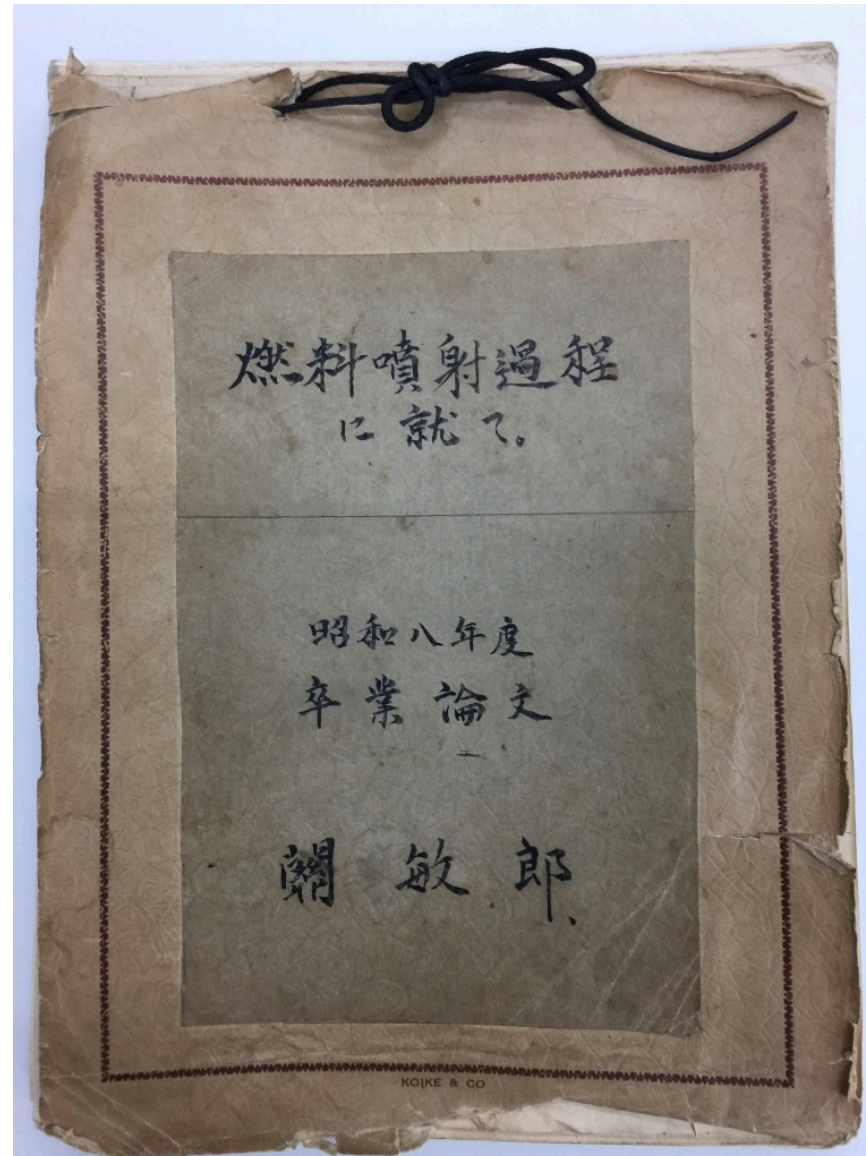 燃料噴射過程
に就て。
昭和八年度
卒業論文
關敏郎、
KOIKE & CO